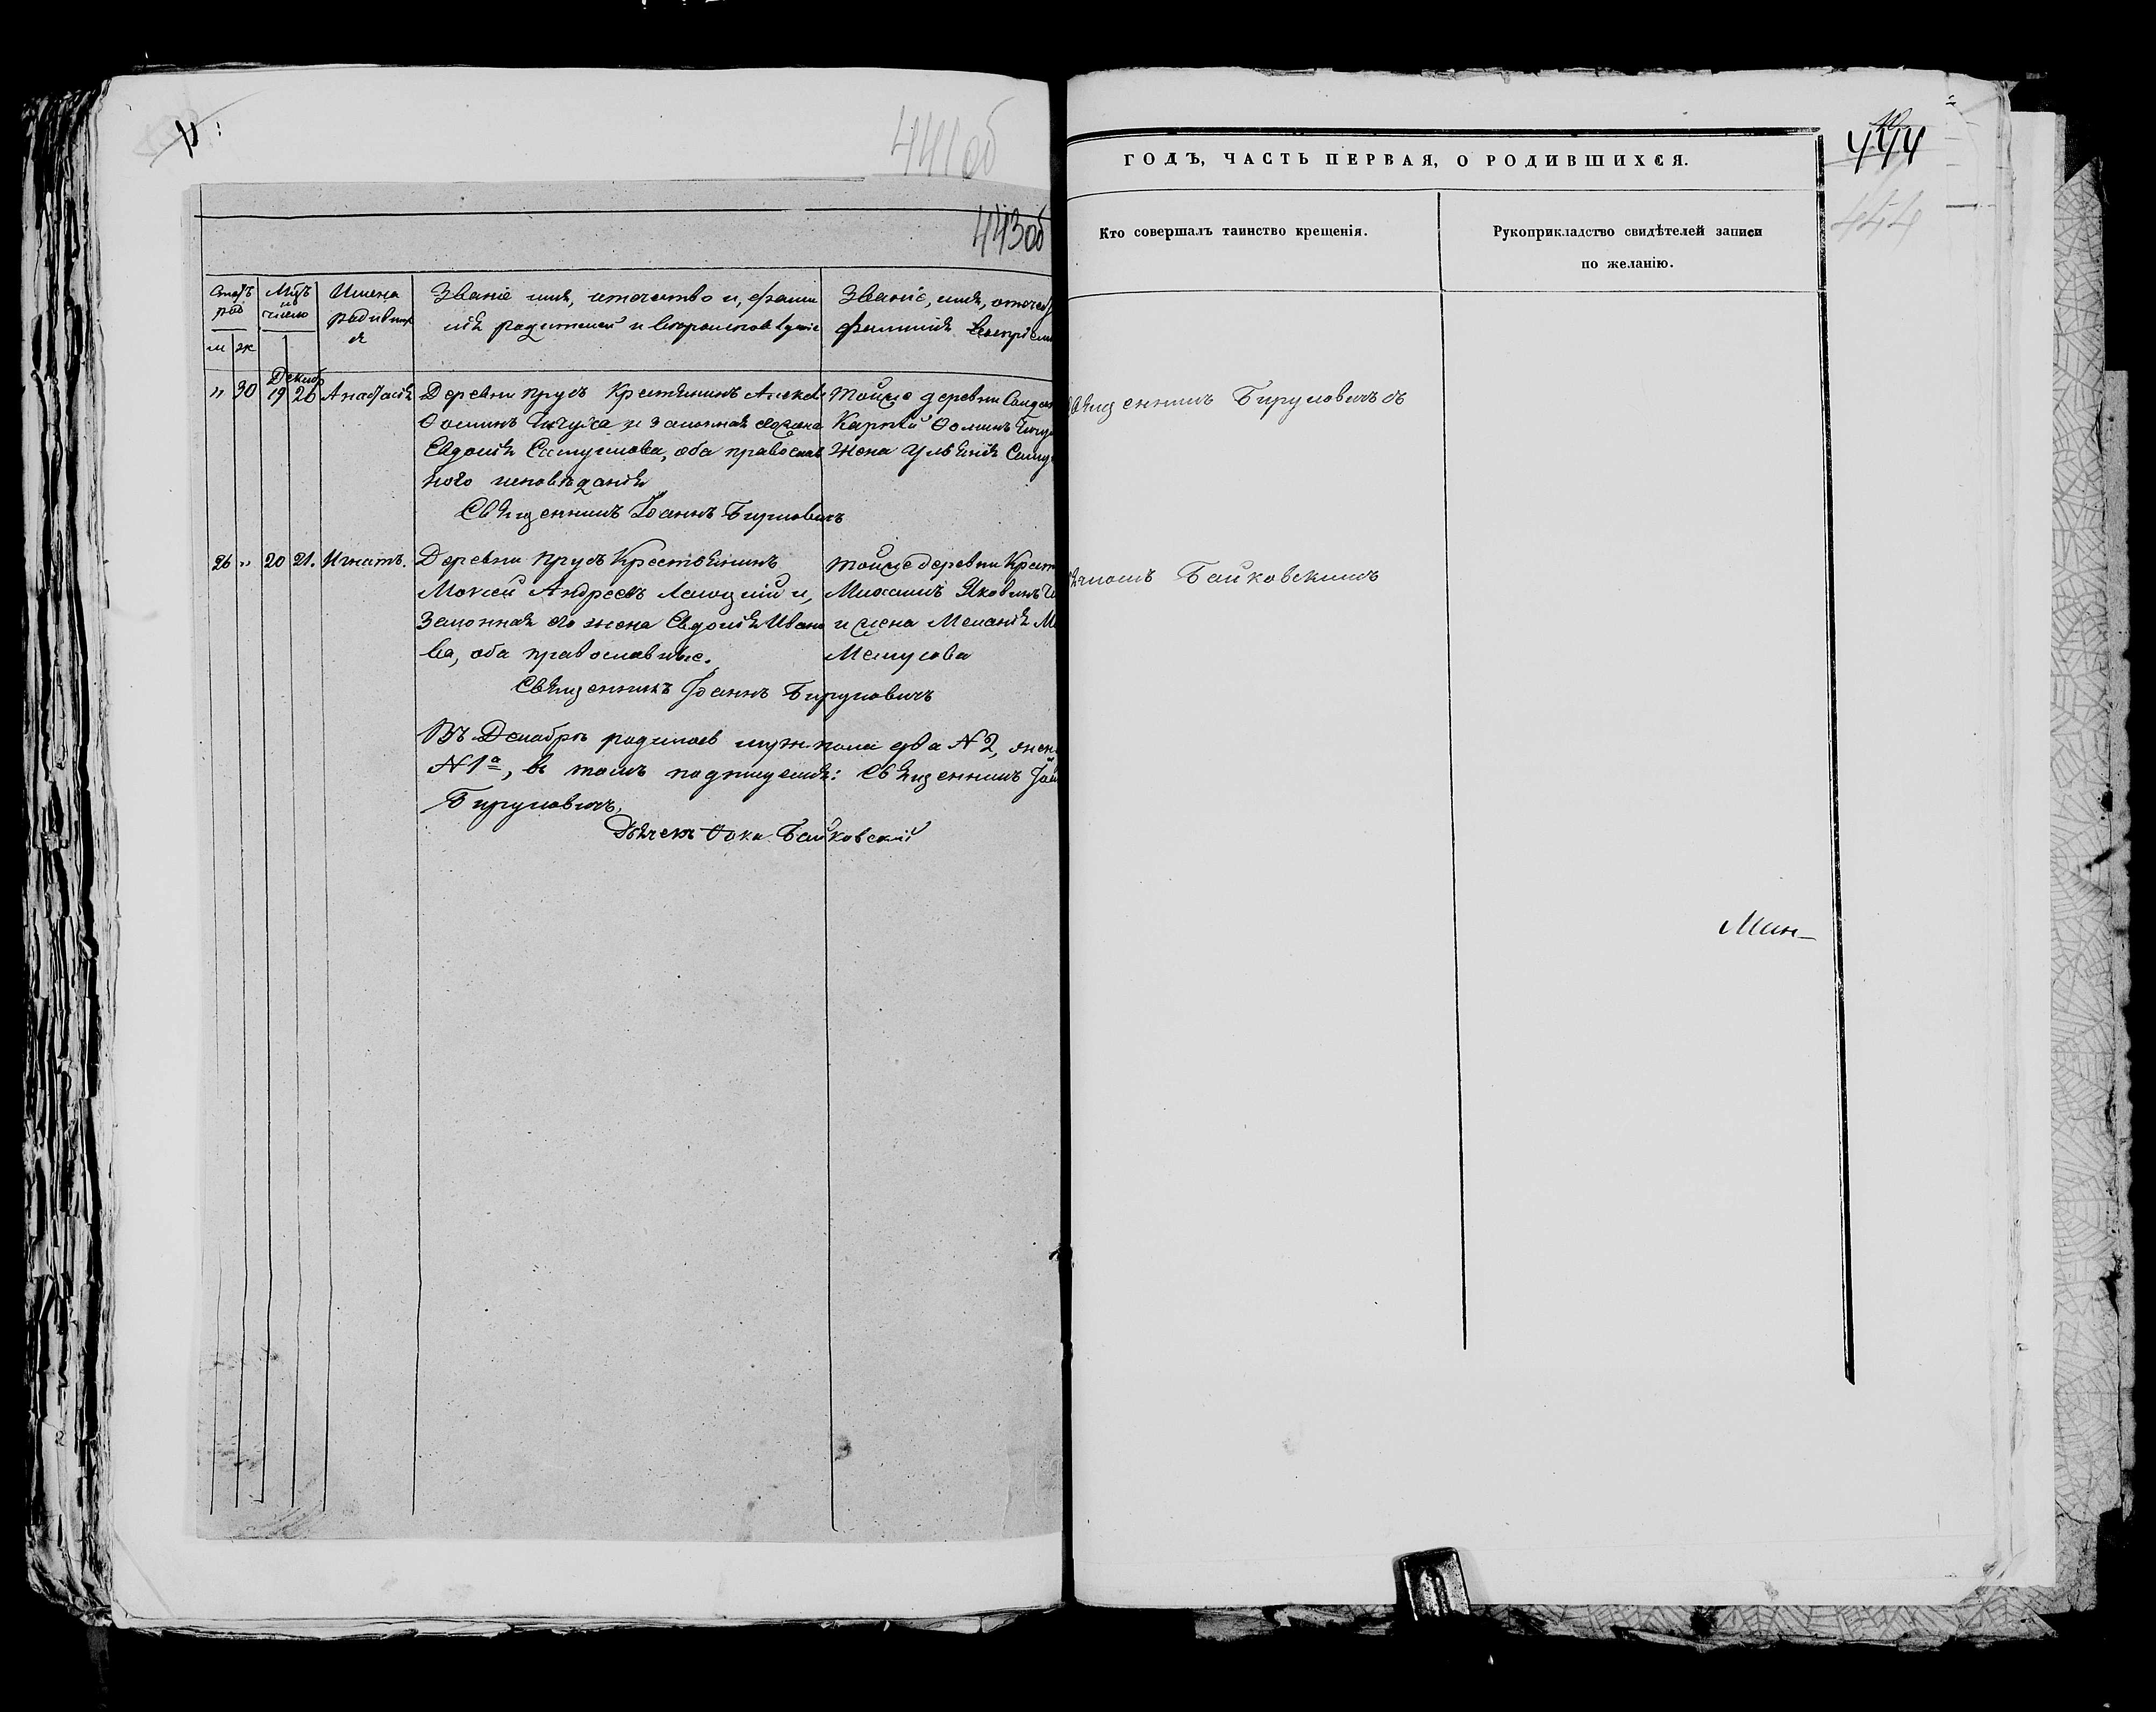 441 об
443 об
Мѣц и число
Имена родивших ся
Званіе имя, отчество и, фами
лія родителей и вѣроисповѣданіе
Званіе, имя, отчест
фамилія воспріем
м ж
Декабр
" 30 19 26 Анастасія
Деревни Прусъ Крестянинъ Алексѣ
Ѳоминъ и законная его жена
Евдокія Самуилова, оба православ
ного исповѣданія
Священникъ Іоаннъ Бируловичъ
Тойже деревни
Карпъ Ѳоминъ
жена Ульянія Саму
26 " 20 21. Игнатъ.
Деревни Прусъ Крестьянинъ
Мокій Андреевъ и,
Законная его жена Евдокія Ивано
ва, оба православные.
Священникъ Іоаннъ Бируловичъ
Тойже деревни Крест
Михаилъ Яковлевъ
и жена Меланія М
Въ Декабрѣ родилось муж. пола два № 2, жен
№ 1а, в томъ подпишемся: Священникъ Іоа
Бируловичъ,
Дьячекъ Ѳока Байковскій
444
444
ГОДЪ, ЧАСТЬ ПЕРВАЯ, О РОДИВШИХСЯ.
Кто совершалъ таинство крещенія.
Рукоприкладство свидѣтелей записи
по желанію.
священникъ Бируловичъ съ
дьячкомъ Байковскимъ
Мин-